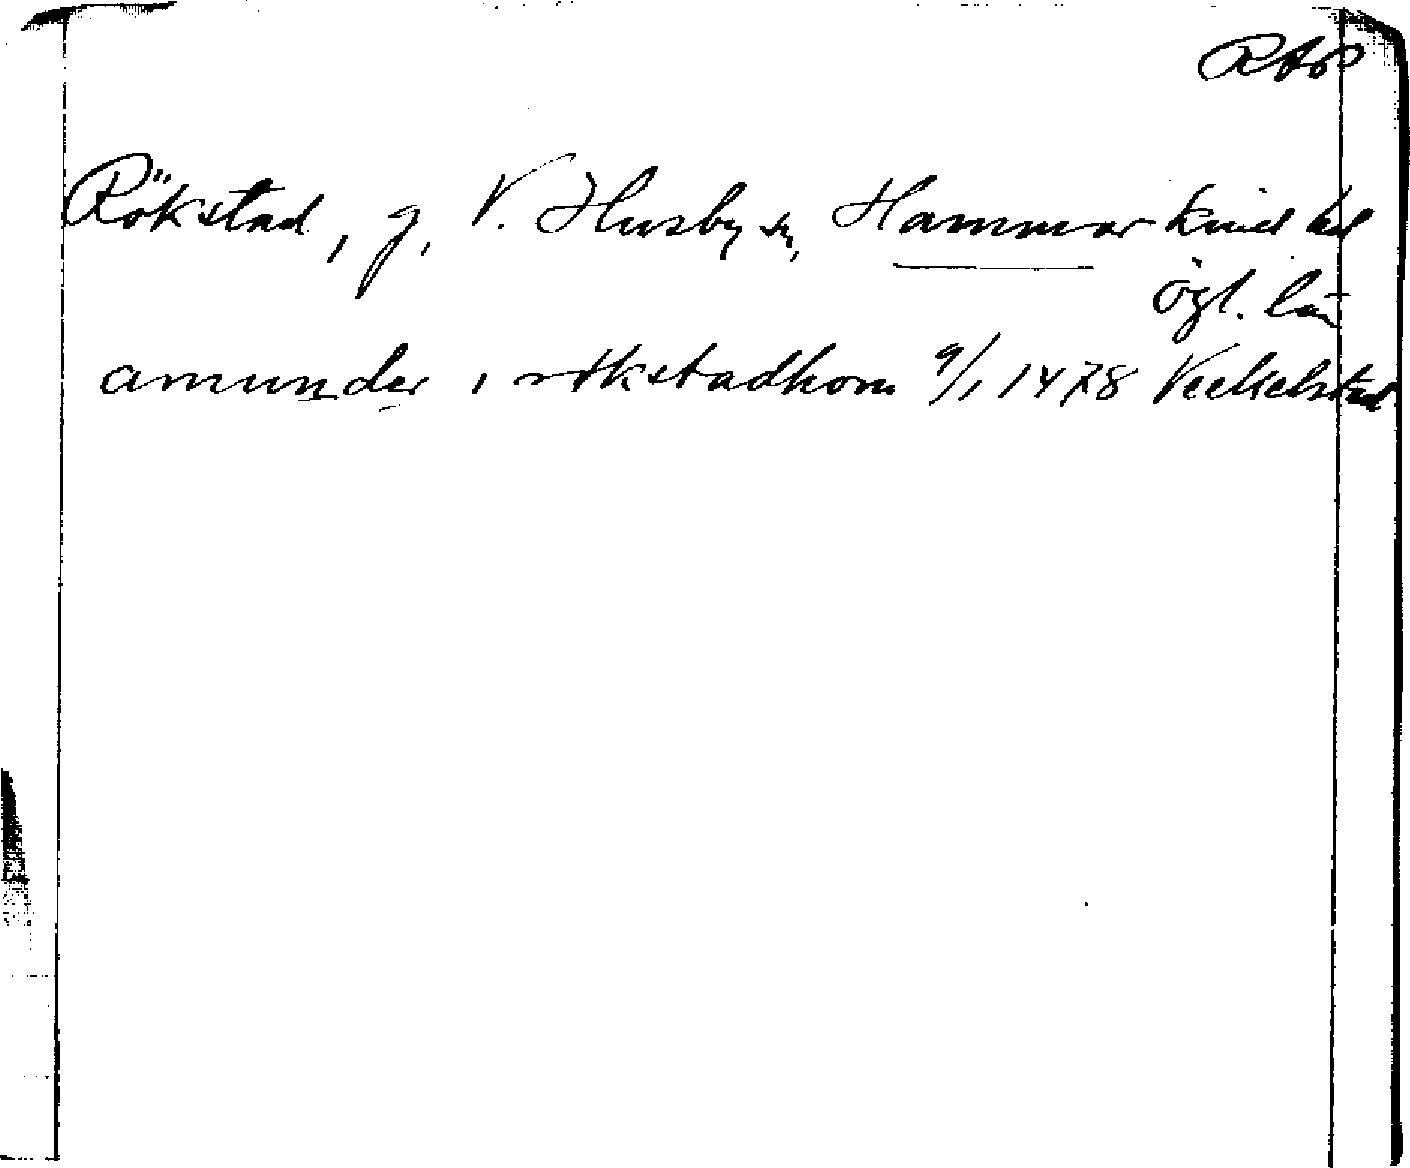 RAP
Rökstad, g, V. Husby sn, Hammarkind hd
Ögl. län
amunder i rökstadhom 9/1 1478